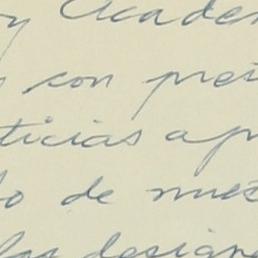 y Acade
con prei
ticias apr
do de nues
los designe